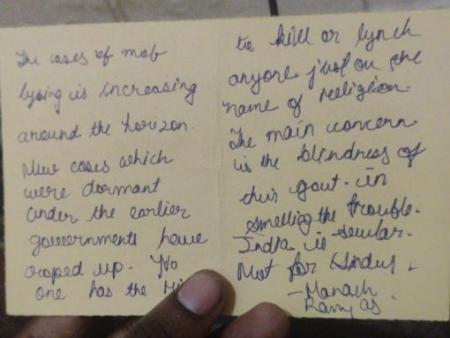 The cases of mob
lycing is increasing
around the horizon.
New cases which
were dormant
under the earlier
governments have
croped up. No
one has the
to kill or lynch
anyone just on the
name of religion.
The main concern
is the blindness of
this govt. in
smelling the trouble.
India is secular.
Not for Hindus.